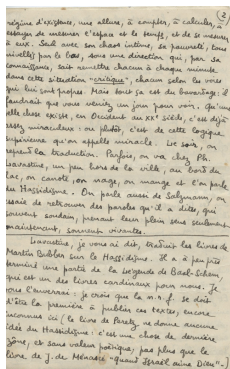 (2
régime d'existence, une allure, à compter, à calculer, à
essayer de mesurer l'espace et le temps, et de se mesurer
à eux. Seul avec son chaos intime, sa pauvreté, tous
nivellés par le bas, sous une direction qui, par sa
connaissance, sait remettre chacun à chaque minute
dans cette situation "critique", chacun selon les voies
qui lui sont propres. Mais tout ça est du bavardage : il
faudrait que vous veniez un jour pour voir. Qu'une
telle chose existe, en Occident au XXe siècle, c'est déjà
assez miraculeux : ou plutôt, c'est de cette logique
supérieure qu'on appelle miracle. Le soir, on
reprend la traduction. Parfois, on va chez Ph.
Lavastine, un peu hors de la ville, au bord du
lac, on canote, on nage, on mange et l'on parle
du Hassidisme. On parle aussi de Salzmann, on
essaie de retrouver des paroles qu'il a dites, qui
souvent soudain, prenant leur plein sens seulement
maintenant, sonnent vivantes.
Lavastine, je vous ai dit, traduit les livres de
Martin Bubber sur le Hassidisme. Il a à peu près
terminé une partie de la Légende de Baal-Schem,
qui est un des livres cardinaux pour nous. Je
vous l'enverrai : je crois que la n.r.f. se doit
d'être la première à publier ces textes, encore
inconnus ici (le livre de Peretz ne donne aucune
idée du Hassidisme : c'est une chose de dernière
zône, et sans valeur poétique, pas plus que le
livre de J. de Menasce "quand Israël aime Dieu".)